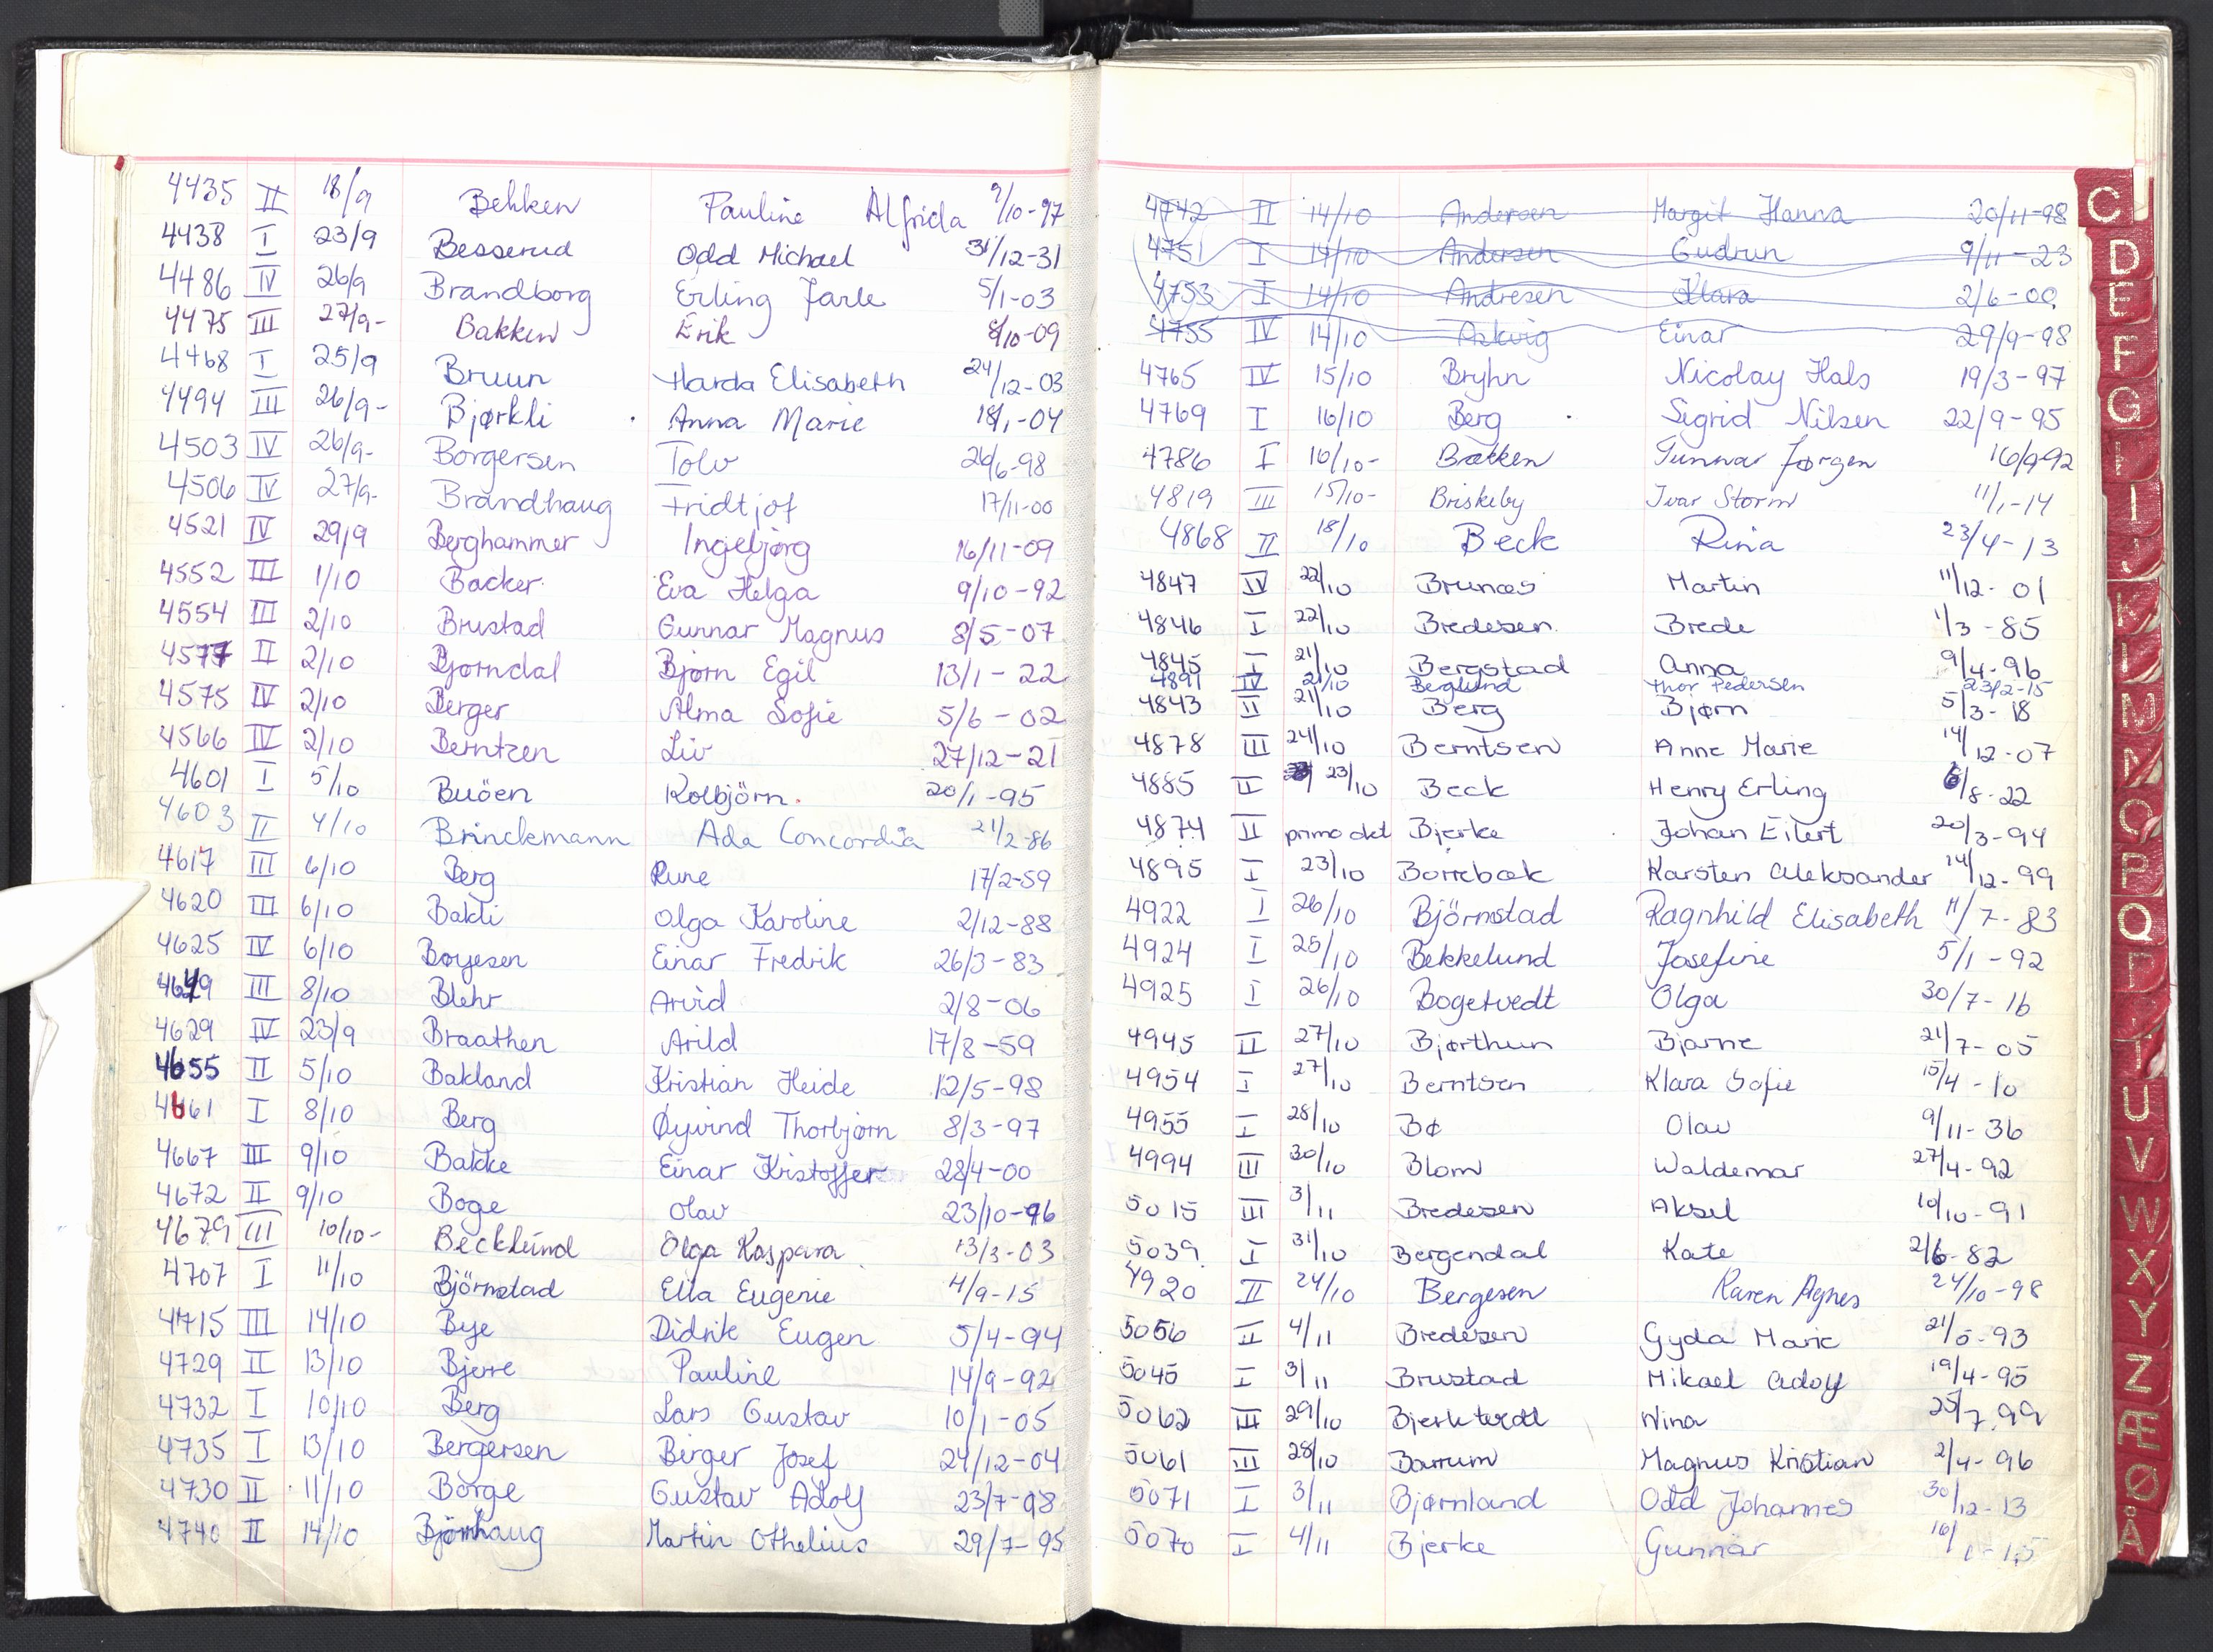 4435 II 18/9 Behken Pauline Alfrida 9/10-97
4438 I 23/9 Besserud Odd Michael 31/12-31
4486 IV 26/9 Brandborg Erling Jarle 5/1-03
4475 III 27/9- Bakken Erik 8/10-09
4468 I 25/9 Bruun Harda Elisabeth 24/12-03
4494 III 26/9- Bjørkli Anna Marie 18/1-04
4503 IV 26/9- Borgersen Tolv 26/6-98
4506 IV 27/9- Brandhaug Fridtjof 17/11-00
4521 IV 29/9 Berghammer Ingebjørg 16/11-09
4552 III 1/10 Backer Eva Helga 9/10-92
4554 III 2/10 Brustad Gunnar Magnus 8/5-07
4577 II 2/10 Bjørndal Bjørn Egil 13/1-22
4575 IV 2/10 Berger Alma Sofie 5/6-02
4566 IV 2/10 Berntzen Liv 27/12-21
4601 I 5/10 Buöen Kolbjörn. 20/1-95
4603 II 4/10 Brinckmann Ada Concordia 21/2-86
4617 III 6/10 Berg Rune 17/2-59
4620 III 6/10 Bakli Olga Karoline 2/12-88
4625 IV 6/10 Boyesen Einar Fredrik 26/3-83
4649 III 8/10 Blehr Arvid 2/8-06
4629 IV 23/9 Braathen Arild 17/8-59
4655 II 5/10 Bakland Kristian Heide 12/5-98
4661 I 8/10 Berg Øyvind Thorbjørn 8/3-97
4667 III 9/10 Bakke Einar Kristoffer 28/4-00
4672 II 9/10 Boge Olav 23/10-96
4679 III 10/10- Becklund Olga Kaspara 13/3-03
4707 I 11/10 Björnstad Ella Eugenie 4/9-15
4715 III 14/10 Bye Didrik Eugen 5/4-94
4729 II 13/10 Bjerre Pauline 14/9-92
4732 I 10/10 Berg Lars Gustav 10/1-05
4735 I 13/10 Bergersen Birger Josef 24/12-04
4730 II 11/10 Borge Gustav Adolf 23/7-98
4740 II 14/10 Bjørnhaug Martin Othelius 29/7-95
4742 II 14/10 Andersen Margit Hanna 20/11-98
4751 I 14/10 Andersen Gudrun 9/11-23
4753 I 14/10 Andresen Klara 2/6-00
4755 IV 14/10 Askvig Einar 29/9-98
4765 IV 15/10 Bryhn Nicolay Hals 19/3-97
4769 I 16/10 Berg Sigrid Nilsen 22/9-95
4786 I 16/10- Bakken Gunnar Jørgen 16/9-92
4819 III 15/10- Briskeby Ivar Storm 11/1-14
4868 II 18/10 Beck Rina 23/4-13
4847 IV 22/10 Brunæs Martin 11/12-01
4846 I 22/10 Bredesen Brede 1/3-85
4845 I 21/10 Bergstad Anna 9/4-96
4891 IV 21/10 Berglund Thor Pedersen 23/2-15
4843 II 21/10 Berg Bjørn 5/3-18
4878 III 24/10 Berntsen Anne Marie 14/12-07
4885 II 23/10 Beck Henry Erling 6/8-22
4874 II primo okt Bjerke Johan Eilert 20/3-94
4895 I 23/10 Borrebæk Karsten Aleksander 14/12-99
4922 I 26/10 Björnstad Ragnhild Elisabeth 11/7-83
4924 I 25/10 Bekkelund Josefine 5/1-92
4925 I 26/10 Bogetvedt Olga 30/7-16
4945 II 27/10 Bjørthun Bjarne 21/7-05
4954 I 27/10 Berntsen Klara Sofie 15/4-10
4955 I 28/10 Bø Olav 9/11-36
4994 III 30/10 Blom Waldemar 27/4-92
5015 III 3/11 Bredesen Aksel 10/10-91
5039 I 31/10 Bergendal Kate 2/6-82
4920 II 24/10 Bergesen Karen Agnes 24/10-98
5056 II 4/11 Bredesen Gyda Marie 21/5-93
5045 I 3/11 Brustad Mikael Adolf 19/4-95
5062 III 29/10 Bjerktvedt Nina 25/7.99
5061 III 28/10 Barrum Magnus Kristian 2/4-96
5071 I 3/11 Bjørnland Odd Johannes 30/12-13
5070 I 4/11 Bjerke Gunnar 16/1-15
C
D
E
F
G
H
I
J
K
L
M
N
O
P
Q
R
T
U
V
W
X
Y
Z
Æ
Ø
Å